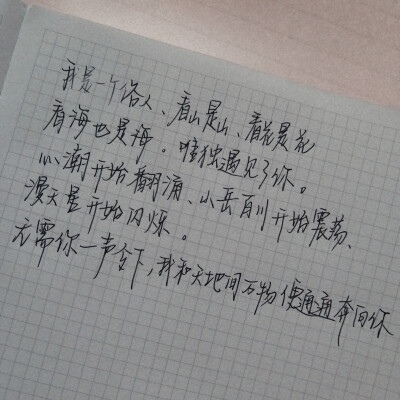 我是一个俗人、看山是山、看花是花
看海也是海。唯独遇见了你。
心潮开始翻涌、山岳百川开始震荡、
漫天星开始闪烁。
无需你一声令下，我和天地间万物便通通奔向你